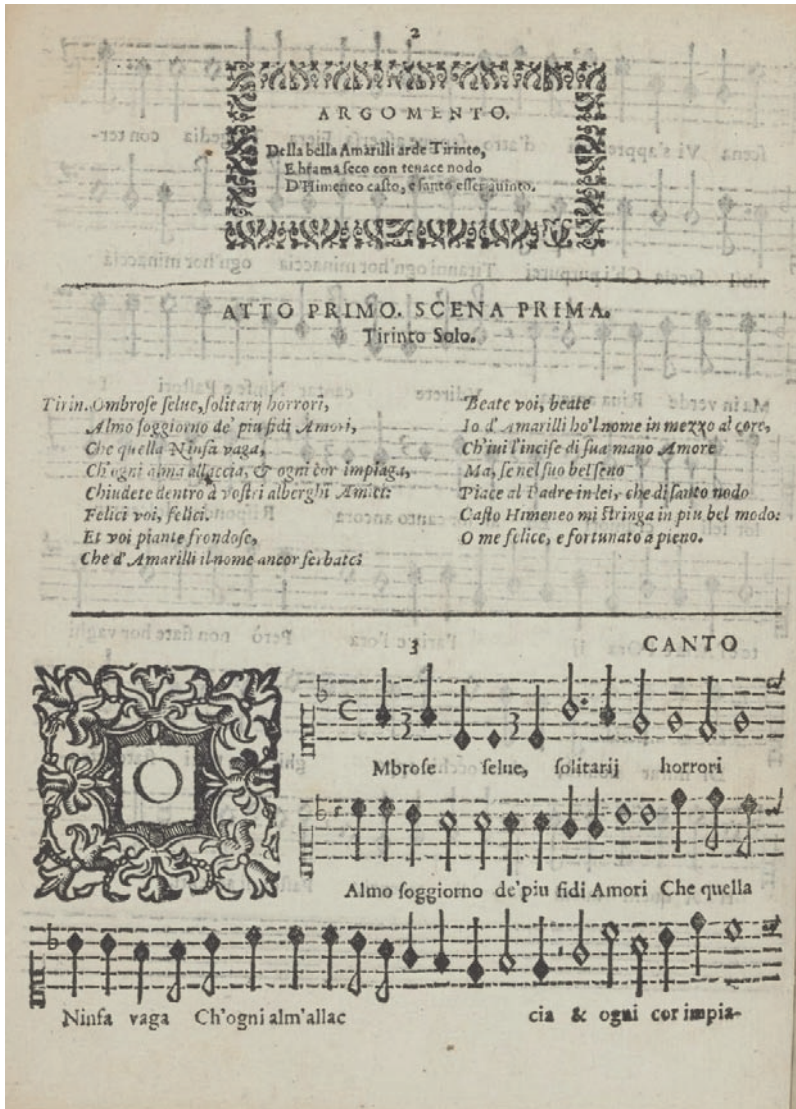 2
ARGOMENTO.
Della bella Amarilli arde Tirinto,
E brama seco con tenace nodo
D'Himeneo casto, e santo esser auinto.
ATTO PRIMO. SCENA PRIMA.
Tirinto Solo.
Tirin. Ombrose selue, solitarij horrori,
Almo soggiorno de' piu fidi Amori,
Che quella Ninfa vaga,
Ch'ogni alma allaccia, & ogni cor impiaga,
Chiudete dentro à vostri alberghi Amici:
Felici voi, felici.
Et voi piante frondose,
Che d'Amarilli il nome ancor serbate;
Beate voi, beate
Io d'Amarilli ho'l nome in mezzo al core,
Ch'iui l'incise di sua mano Amore
Ma, se nel suo bel seno
Piace al Padre in lei, che di santo nodo
Casto Himeneo mi stringa in piu bel modo:
O me felice, e fortunato a pieno.
3 CANTO
O
Mbrose selue, solitarij horrori
Almo soggiorno de'piu fidi Amori Che quella
Ninfa vaga Ch'ogni alm'allac cia & ogni cor impia-